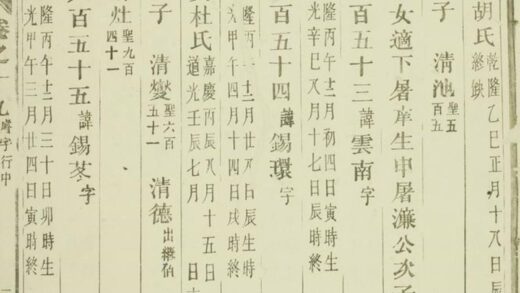 胡氏 終缺 乾隆乙巳正月十八日辰
子 清池 聖五百五
女適下屠庠生申屠濂公次子
百五十三諱雲南字
隆丙午十二月初四日寅時生
光辛巳八月十七日辰時終
百五十四諱錫環字
隆丙 十二月廿八日辰生時
光甲午四月十四日戌時終
杜氏 嘉慶丙辰八月十五日
道光壬辰七月 日
子 清燮 聖六百五十一 清德 出繼伯
灶 聖九百四十一
百五十五諱錫苳字
隆丙午十二月三十日卯時生
光甲午三月廿四日寅時終
卷之十九 行中